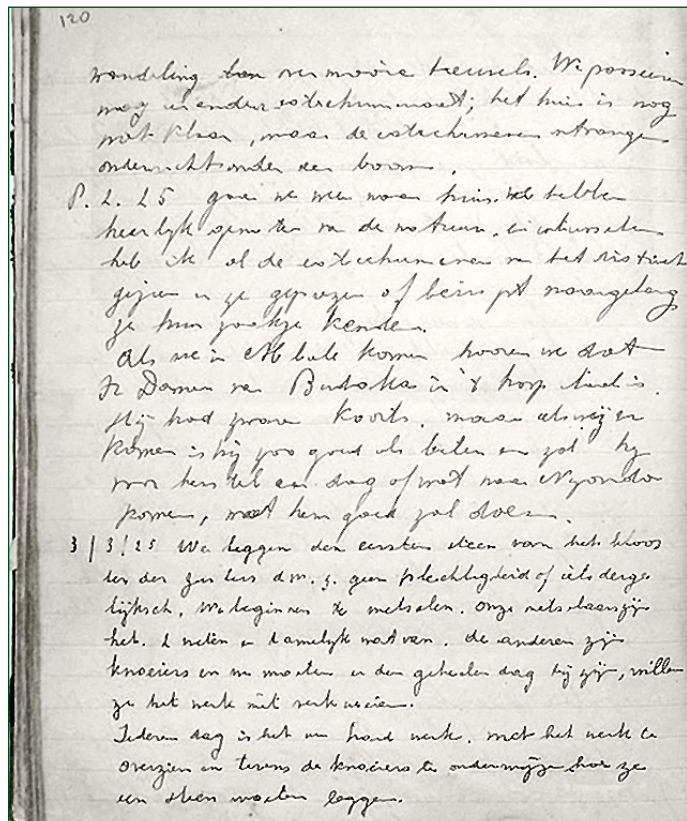 120
wandeling over mooie heuvels. We passeeren
nog een ander; het huis is nog
niet klaar, maar de
onder een boom.
P. 2. 25 gaan we weer naar huis. We hebben
heerlijk genoten van de natuur, en intusschen
heb ik al de catechumenen van het district
gezien en ze geprezen of berispt naargelang
ze hun zaakje kenden.
Als we in Mbale komen hooren we dat
Fr Damen van Budaka in 't hosp
Hij had zware koorts, maar als wij er
komen is hij zoo goed als beter en zal hij
voor herstel een dag of wat naar Nyondo
komen, wat hem goed zal doen.
3/3/25 We leggen den eersten steen van het kloos
ter der zusters d.w.z. geen plechtigheid of iets derge
lijksch. We beginnen te metselen. Onze metselaars zijn
het. 2 weten er tamelijk wat van. de anderen zijn
knoeiers en we moeten er den geheelen dag bij zijn, willen
ze het werk niet verknoeien.
Iederen dag is het nu hard werk, met het werk te
overzien en tevens de knoeiers te onderwijzen hoe ze
een steen moeten leggen.